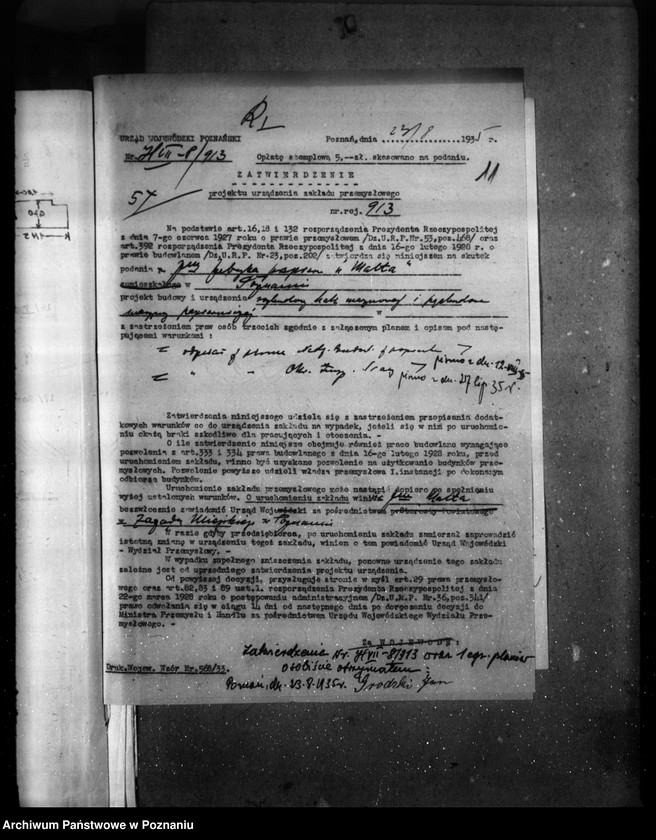 URZĄD WOJEWÓDZKI POZNAŃSKI
Poznań, dnia 23/8 1935 r.
Nr. H VII-8/913
Opłatę stemplową 5,--zł. skasowano na podaniu.
11
ZATWIERDZENIE
57
projektu urządzenia zakładu przemysłowego
nr.rej. 913
Na podstawie art.16,18 i 132 rozporządzenia Prezydenta Rzeczypospolitej
z dnia 7-go czerwca 1927 roku o prawie przemysłowem /Dz.U.R.P.Nr.53,poz.468/ oraz
art.392 rozporządzenia Prezydenta Rzeczypospolitej z dnia 16-go lutego 1928 r. o
prawie budowlanem /Dz.U.R.P. Nr.23,poz.202/ zatwierdza się niniejszem na skutek
podania fabryka papieru "Malta"
zamieszkałego w Poznaniu
projekt budowy i urządzenia i
maszyny papierniczej w
z zastrzeżeniem praw osób trzecich zgodnie z załączonym planem i opisem pod nastę-
pującemi warunkami :
pismo z dn.
pismo z dn. 27 lip. 35 r.
Zatwierdzenia niniejszego udziela się z zastrzeżeniem przepisania dodat-
kowych warunków co do urządzenia zakładu na wypadek, jeżeli się w nim po uruchomie-
niu okażą braki szkodliwe dla pracujących i otoczenia. -
O ile zatwierdzenie niniejsze obejmuje również prace budowlane wymagające
pozwolenia z art.333 i 334 prawa budowlanego z dnia 16-go lutego 1928 roku, przed
uruchomieniem zakładu, winno być uzyskane pozwolenie na użytkowanie budynków prze-
mysłowych. Pozwolenie powyższe udzieli władza przemysłowa I.instancji po dokonanym
odbiorze budynków.
Uruchomienie zakładu przemysłowego może nastąpić dopiero po spełnieniu
wyżej ustalonych warunków. O uruchomieniu zakładu winna Malta
bezzwłocznie zawiadomić Urząd Wojewódzki za pośrednictwem Starosty Powiatowego
Zarządu Miejskiego w Poznaniu
W razie gdyby przedsiębiorca, po uruchomieniu zakładu zamierzał zaprowadzić
istotną zmianę w urządzeniu tegoż zakładu, winien o tem powiadomić Urząd Wojewódzki
- Wydział Przemysłowy. -
W wypadku zupełnego zniszczenia zakładu, ponowne urządzenie tego zakładu
zależne jest od uprzedniego zatwierdzenia projektu urządzenia.
Od powyższej decyzji, przysługuje stronie w myśl art.29 prawa przemysło-
wego oraz art.82,83 i 89 ust.1. rozporządzenia Prezydenta Rzeczypospolitej z dnia
22-go marca 1928 roku o postępowaniu administracyjnem /Dz.U.R.P. Nr.36,poz.341/
prawo odwołania się w ciągu 14 dni od następnego dnia po doręczeniu decyzji do
Ministra Przemysłu i Handlu za pośrednictwem Urzędu Wojewódzkiego Wydziału Prze-
mysłowego. -
Za WOJEWODĘ:
Zatwierdzenie Nr. H VII-8/913 oraz 1 egz. planów
osobiście otrzymałem
Druk.Wojew. Wzór Nr.568/33.
Poznań, dn. 23.8.1935 r. Grodzki Jan
Archiwum Państwowe w Poznaniu